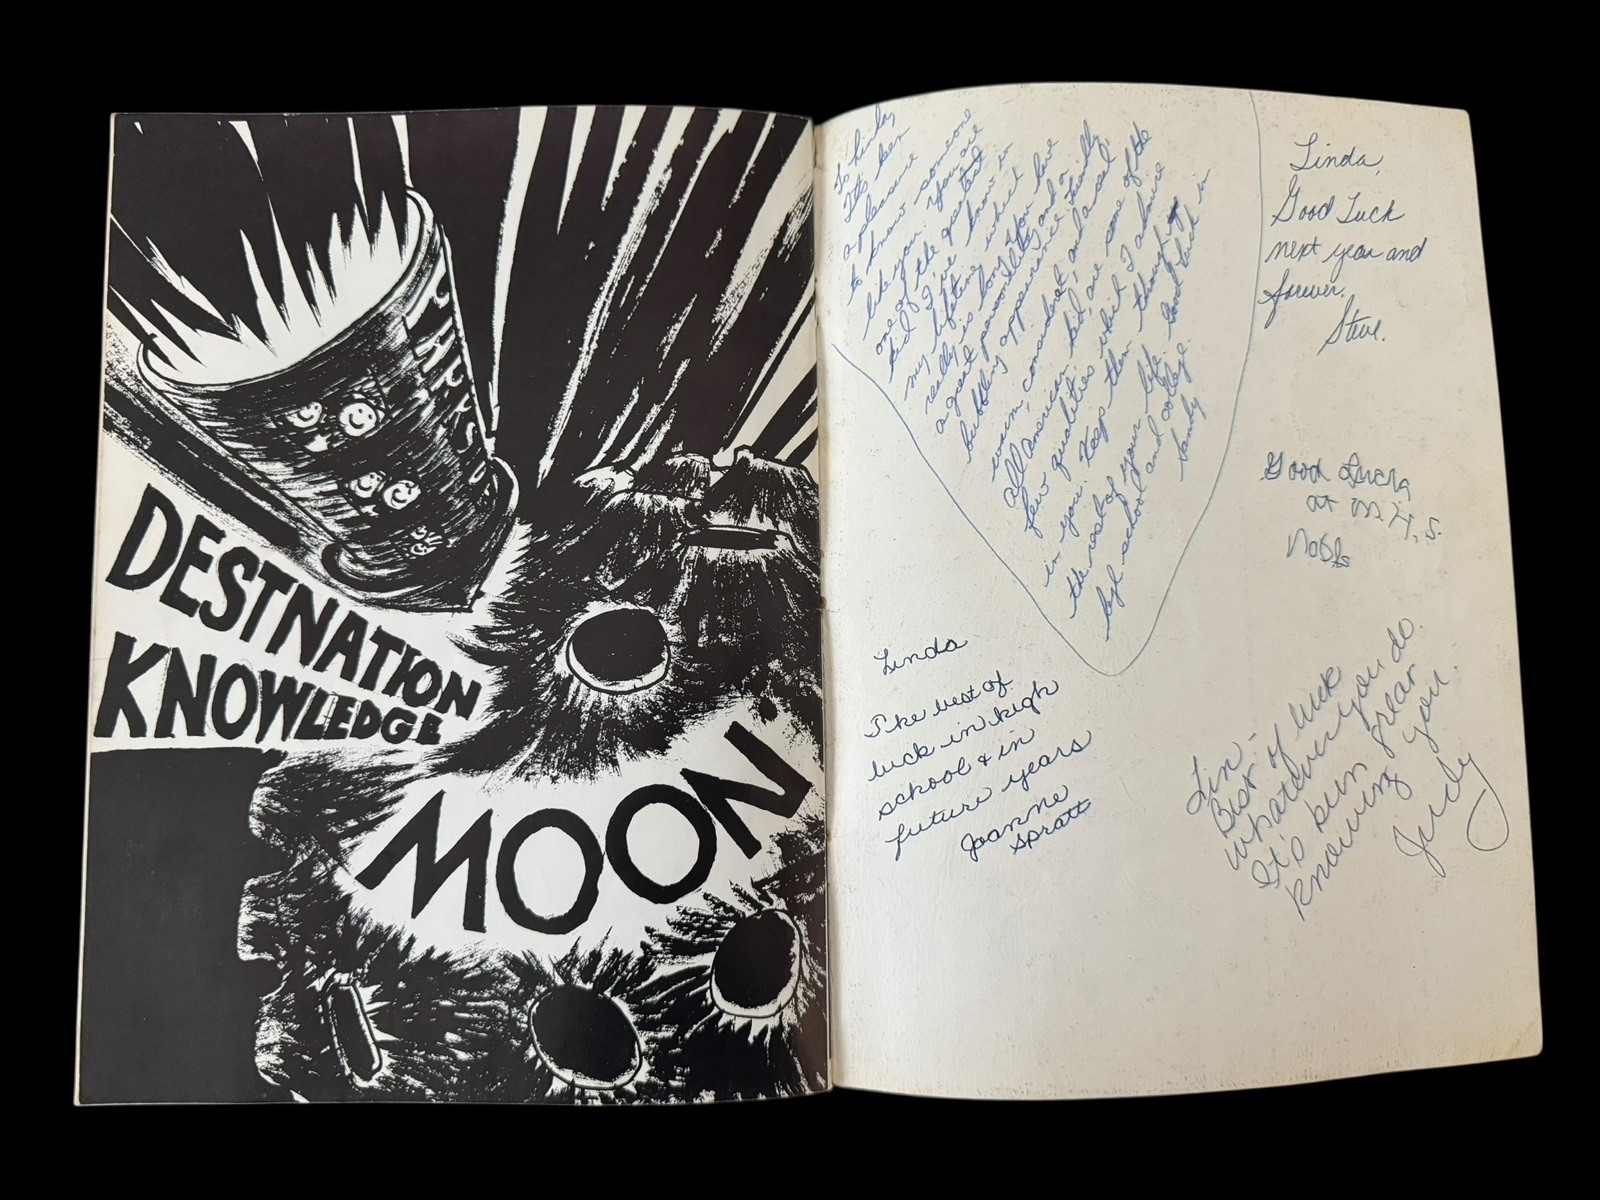 DESTNATION
KNOWLEDGE
MOON.
To Linda,
It's been
a pleasure
to know someone
like you. You are
one of the greatest
kid I've known in
my lifetime which
really is long. You have
a great personality and a
bubbling appearance. Friendly
warm, considerat, and a real
all american kid, are some of the
few qualities which I admire
in you. Keep them through
the rest of your life. Good luck in
high school and college.
Sandy
Linda,
Good Luck
next year and
forever.
Steve.
Good Luck
at M.H.S.
Linda
The best of
luck in high
school & in
future years
Joanne
Spratt
Lin-
Best of luck
whatever you do.
It's been great
knowing you.
Judy